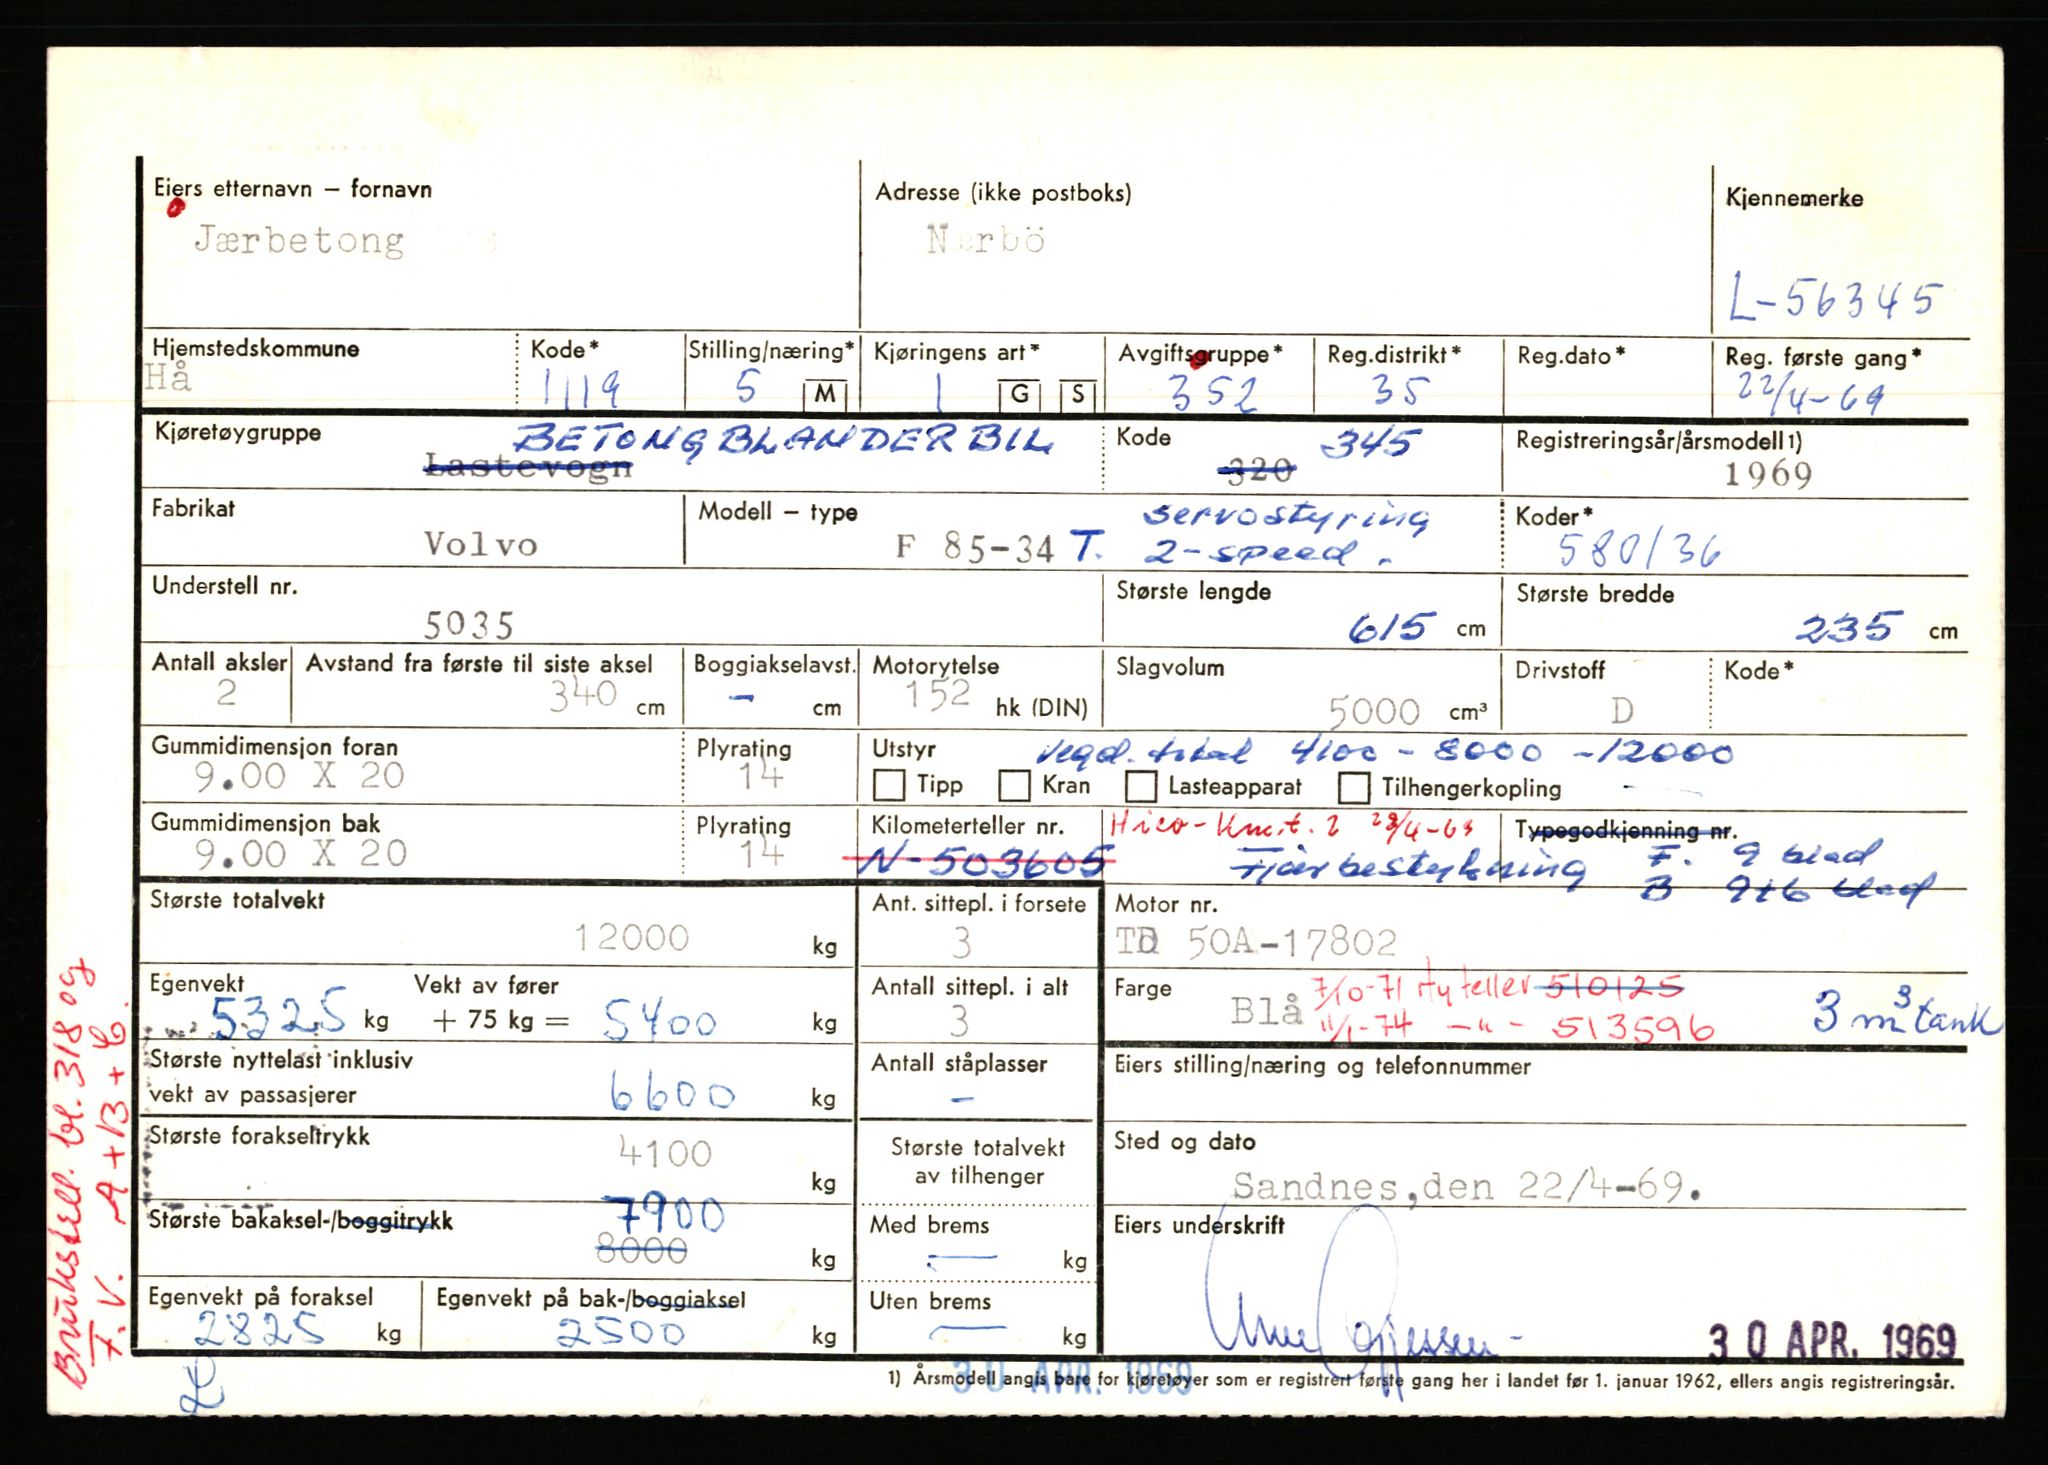 Eiers etternavn – fornavn
Jærbetong
Adresse (ikke postboks)
Nærbö
Kjennemerke
L-56345
Hjemstedskommune
Hå
Kode*
1119
Stilling/næring*
5 M
Kjøringens art*
1 G S
Avgiftsgruppe*
352
Reg.distrikt*
35
Reg.dato*
Reg. første gang*
22/4-69
Kjøretøygruppe
BETONGBLANDERBIL
Lastevogn
Kode
345
320
Registreringsår/årsmodell 1)
1969
Fabrikat
Volvo
Modell – type
F 85-34 T.
servostyring
2-speed.
Koder*
580/36
Understell nr.
5035
Største lengde
615 cm
Største bredde
235 cm
Antall aksler
2
Avstand fra første til siste aksel
340 cm
Boggiakselavst.
– cm
Motorytelse
152 hk (DIN)
Slagvolum
5000 cm³
Drivstoff
D
Kode*
Gummidimensjon foran
9.00 X 20
Plyrating
14
Utstyr
vegd. total 4100 - 8000 - 12000
Tipp Kran Lasteapparat Tilhengerkopling
Gummidimensjon bak
9.00 X 20
Plyrating
14
Kilometerteller nr.
N-503605
Hico-Km.t.
Typegodkjenning nr.
Fjærbestykning F. 9 blad
B 9+6 blad
Største totalvekt
12000 kg
Ant. sittepl. i forsete
3
Motor nr.
TD 50A-17802
Egenvekt
5325 kg
Vekt av fører
+ 75 kg = 5400 kg
Antall sittepl. i alt
3
Farge
Blå
7/10-71 Ny teller 510125
11/1-74 -"- 513596
3 m³ tank
Største nyttelast inklusiv
vekt av passasjerer
6600 kg
Antall ståplasser
–
Eiers stilling/næring og telefonnummer
Største forakseltrykk
4100 kg
Største totalvekt
av tilhenger
Sted og dato
Sandnes,den 22/4-69.
Største bakaksel-/boggitrykk
7900
8000 kg
Med brems
— kg
Eiers underskrift
Egenvekt på foraksel
2825 kg
Egenvekt på bak-/boggiaksel
2500 kg
Uten brems
— kg
30 APR. 1969
30 APR. 1969
1) Årsmodell angis bare for kjøretøyer som er registrert første gang her i landet før 1. januar 1962, ellers angis registreringsår.
Brukstill. bl. 318 og
F.V. A+B+C.